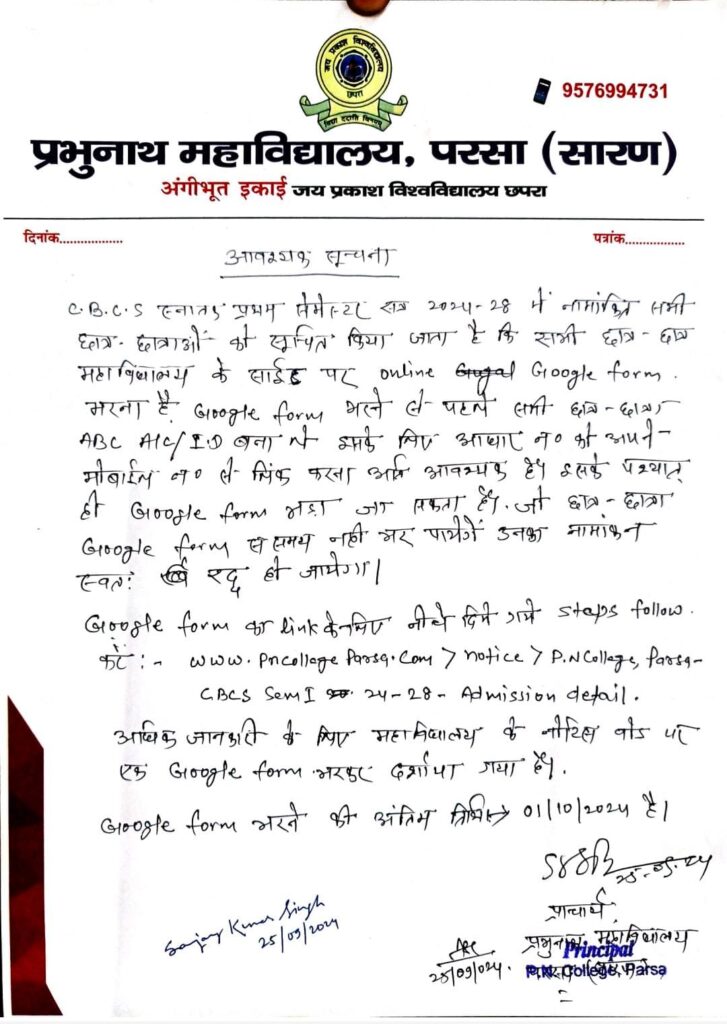 जय प्रकाश विश्वविद्यालय
छपरा
विद्या ददाति विनयम्
9576994731
प्रभुनाथ महाविद्यालय, परसा (सारण)
अंगीभूत इकाई जय प्रकाश विश्वविद्यालय छपरा
दिनांक.................
पत्रांक................
आवश्यक सूचना
C.B.C.S स्नातक प्रथम सेमेस्टर सत्र 2024-28 में नामांकित सभी
छात्र-छात्राओं को सूचित किया जाता है कि सभी छात्र-छात्र
महाविद्यालय के साईड पर online Google form.
भरना है। Google form भरने से पहले सभी छात्र-छात्रा
ABC A/C/I.D बना लें इसके लिए आधार न० को अपने
मोबाईल न० से लिंक करना अति आवश्यक है। इसके पश्चात्
ही Google form भरा जा सकता है। जो छात्र-छात्रा
Google form स समय नही भर पायेगें उनका नामांकन
स्वतः रद्द हो जायेगा।
Google form का link के लिए नीचे दिये गये steps follow.
करें :- www.PnCollegeParsa.Com > notice > P.N College, Parsa-
CBCS Sem I 24-28 - Admission detail.
अधिक जानकारी के लिए महाविद्यालय के नोटिस बोर्ड पर
एक Google form भरकर दर्शाया गया है।
Google form भरने की अंतिम तिथि→ 01/10/2024 है।
25-09-24
Sanjay Kumar Singh
25/09/2024
25/09/024.
प्राचार्य
प्रभुनाथ महाविद्यालय
Principal
P.N. College, Parsa